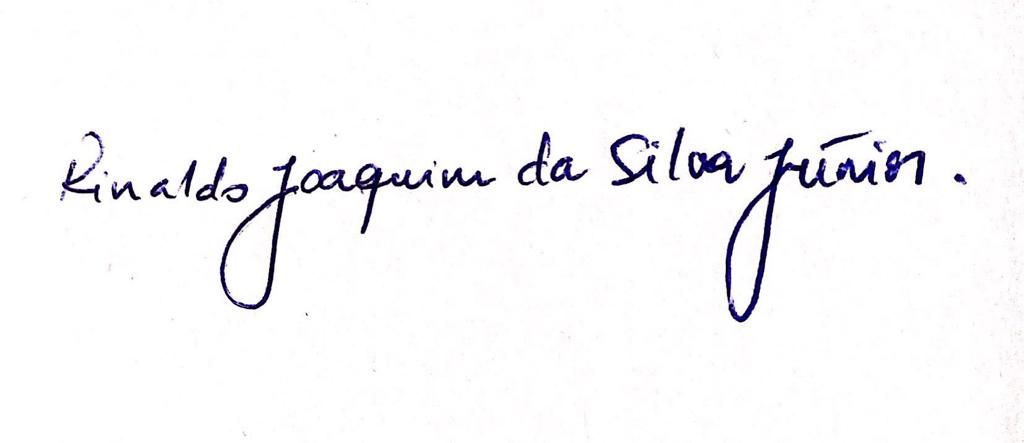 Rinaldo Joaquim da Silva Júnior.